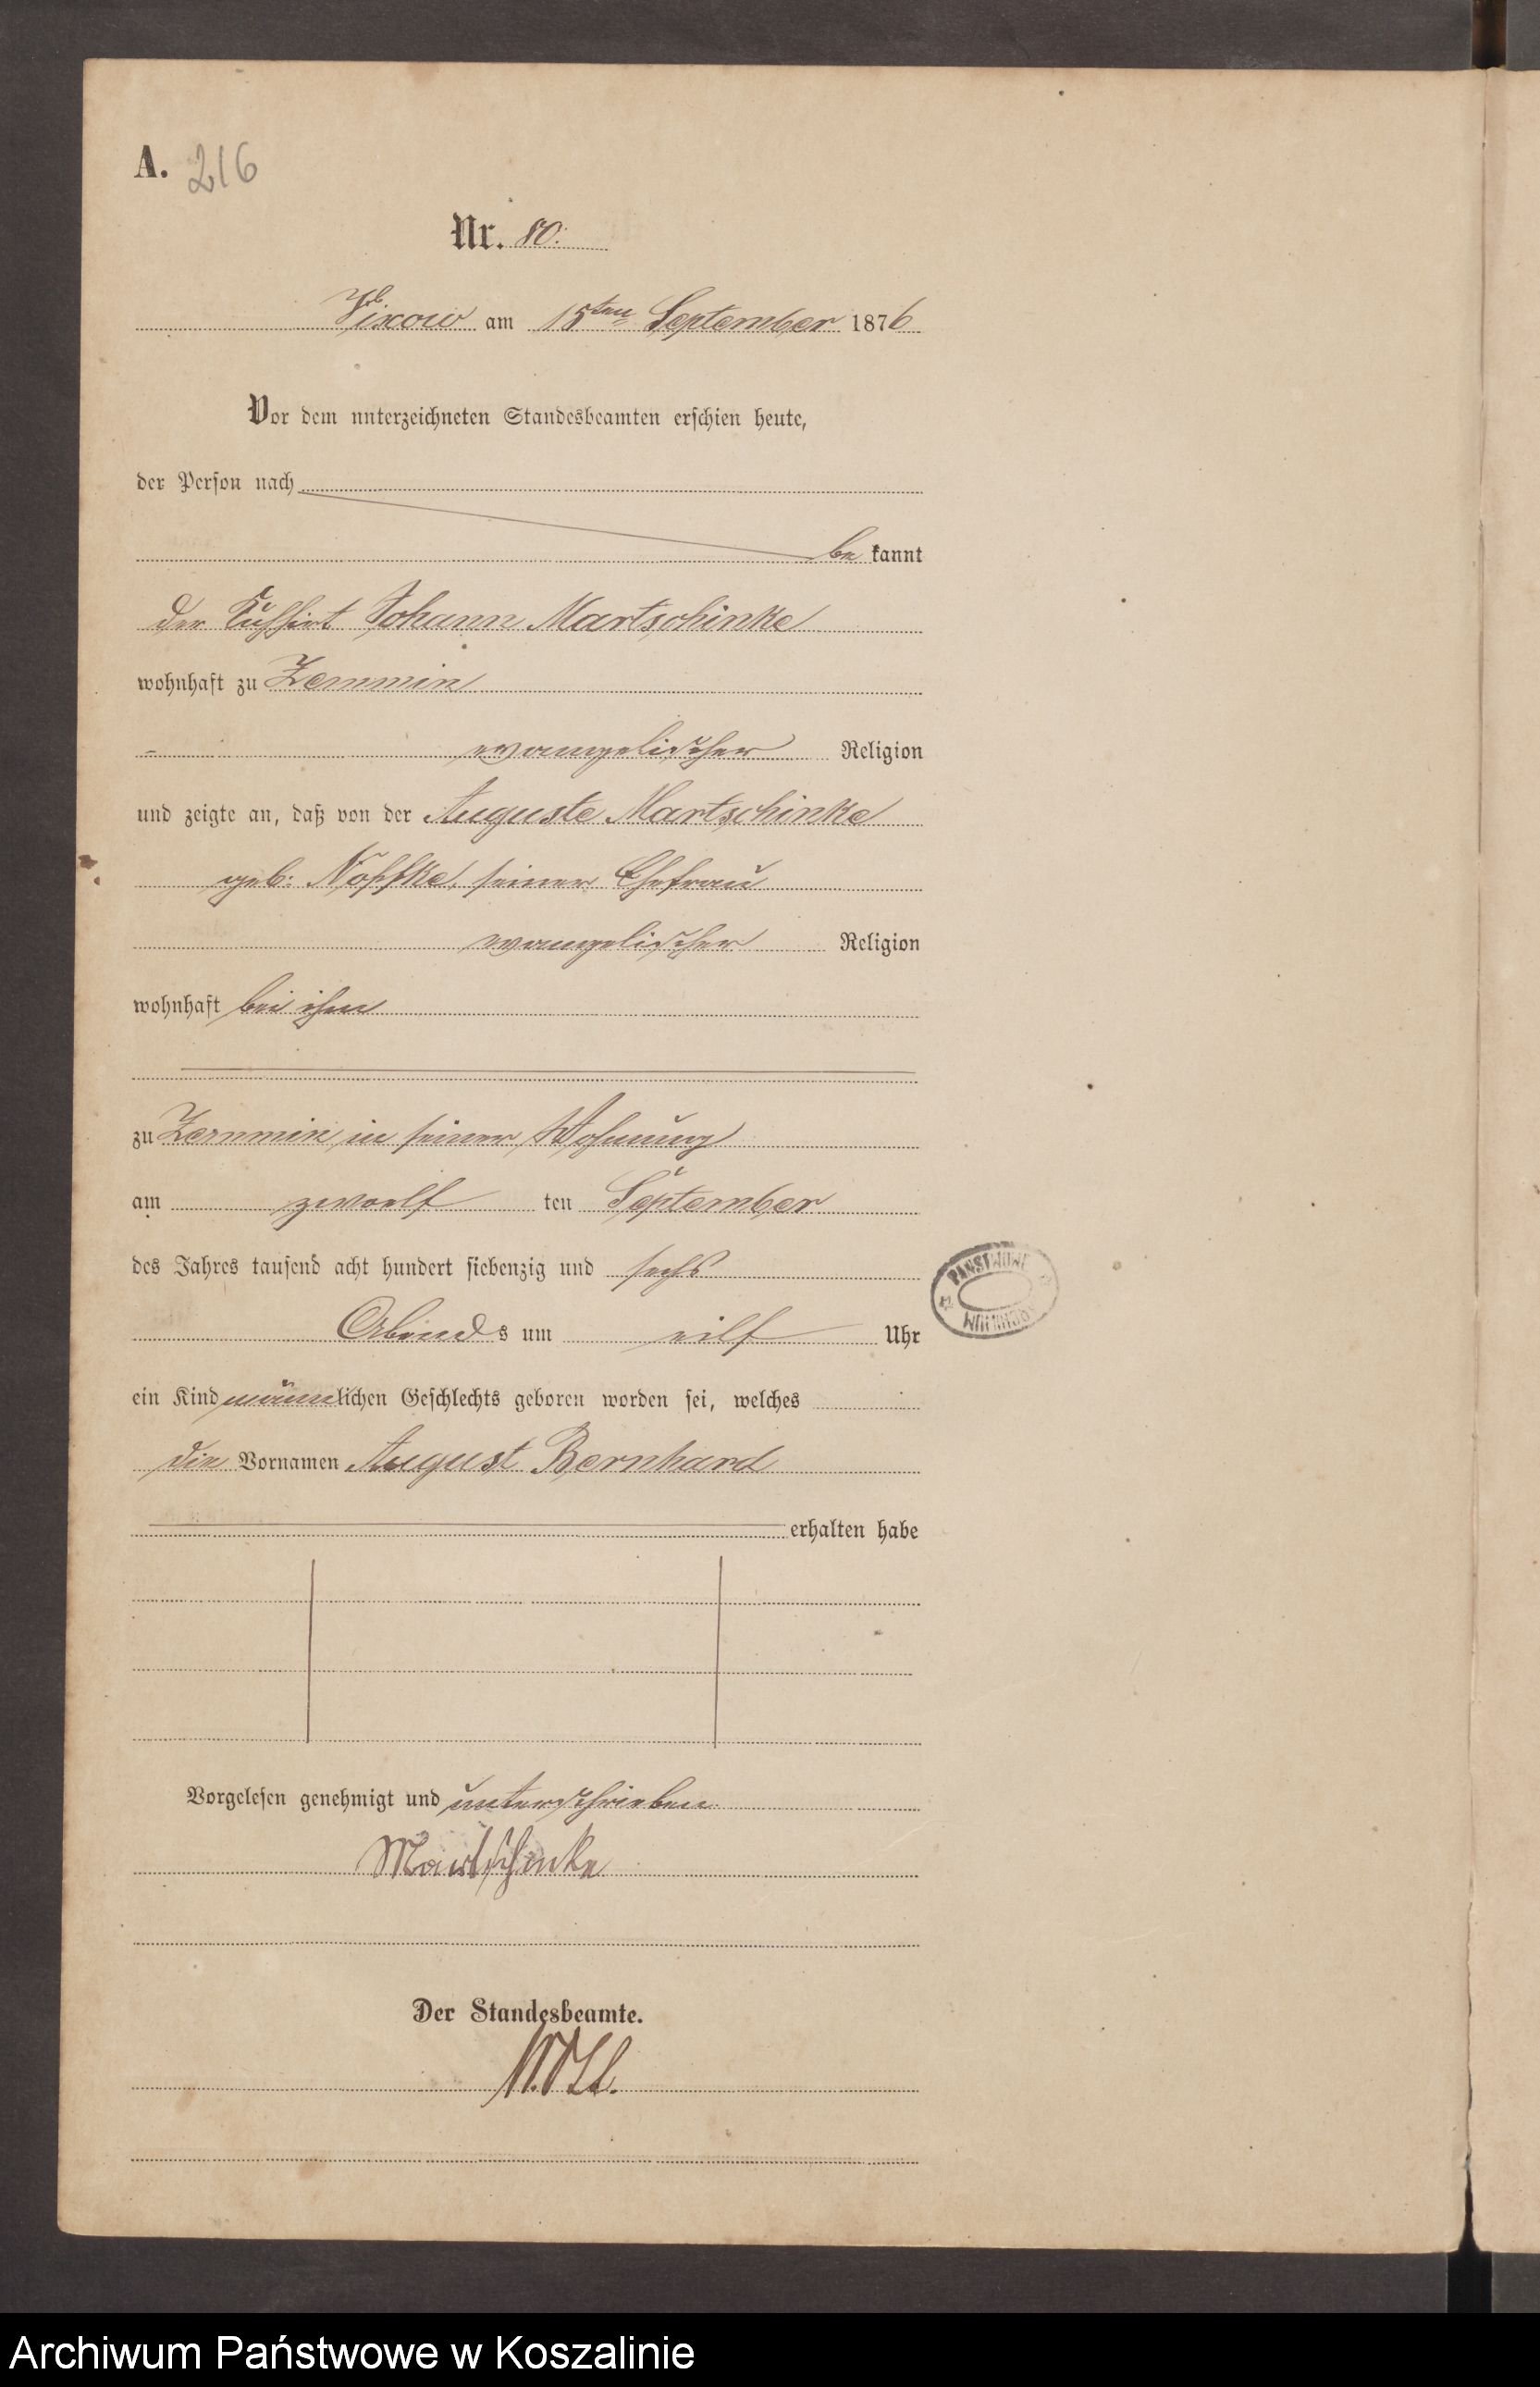 A. 216
Nr. 80.
Vixow am 15ten September 1876
Vor dem unterzeichneten Standesbeamten erschien heute,
der Person nach
be kannt
der Kuhhirt Johann Martschinke
wohnhaft zu Zemmin
evangelischer Religion
und zeigte an, daß von der Auguste Martschinke
geb. Noffke, seiner Ehefrau
evangelischer Religion
wohnhaft bei ihm
zu Zemmin in seiner Wohnung
am zwoelf ten September
des Jahres tausend acht hundert siebenzig und sechs
Abends um eilf Uhr
ein Kind männlichen Geschlechts geboren worden sei, welches
die Vornamen August Bernhard
erhalten habe
Vorgelesen genehmigt und unterschrieben
Martschinke
Der Standesbeamte.
Archiwum Państwowe w Koszalinie